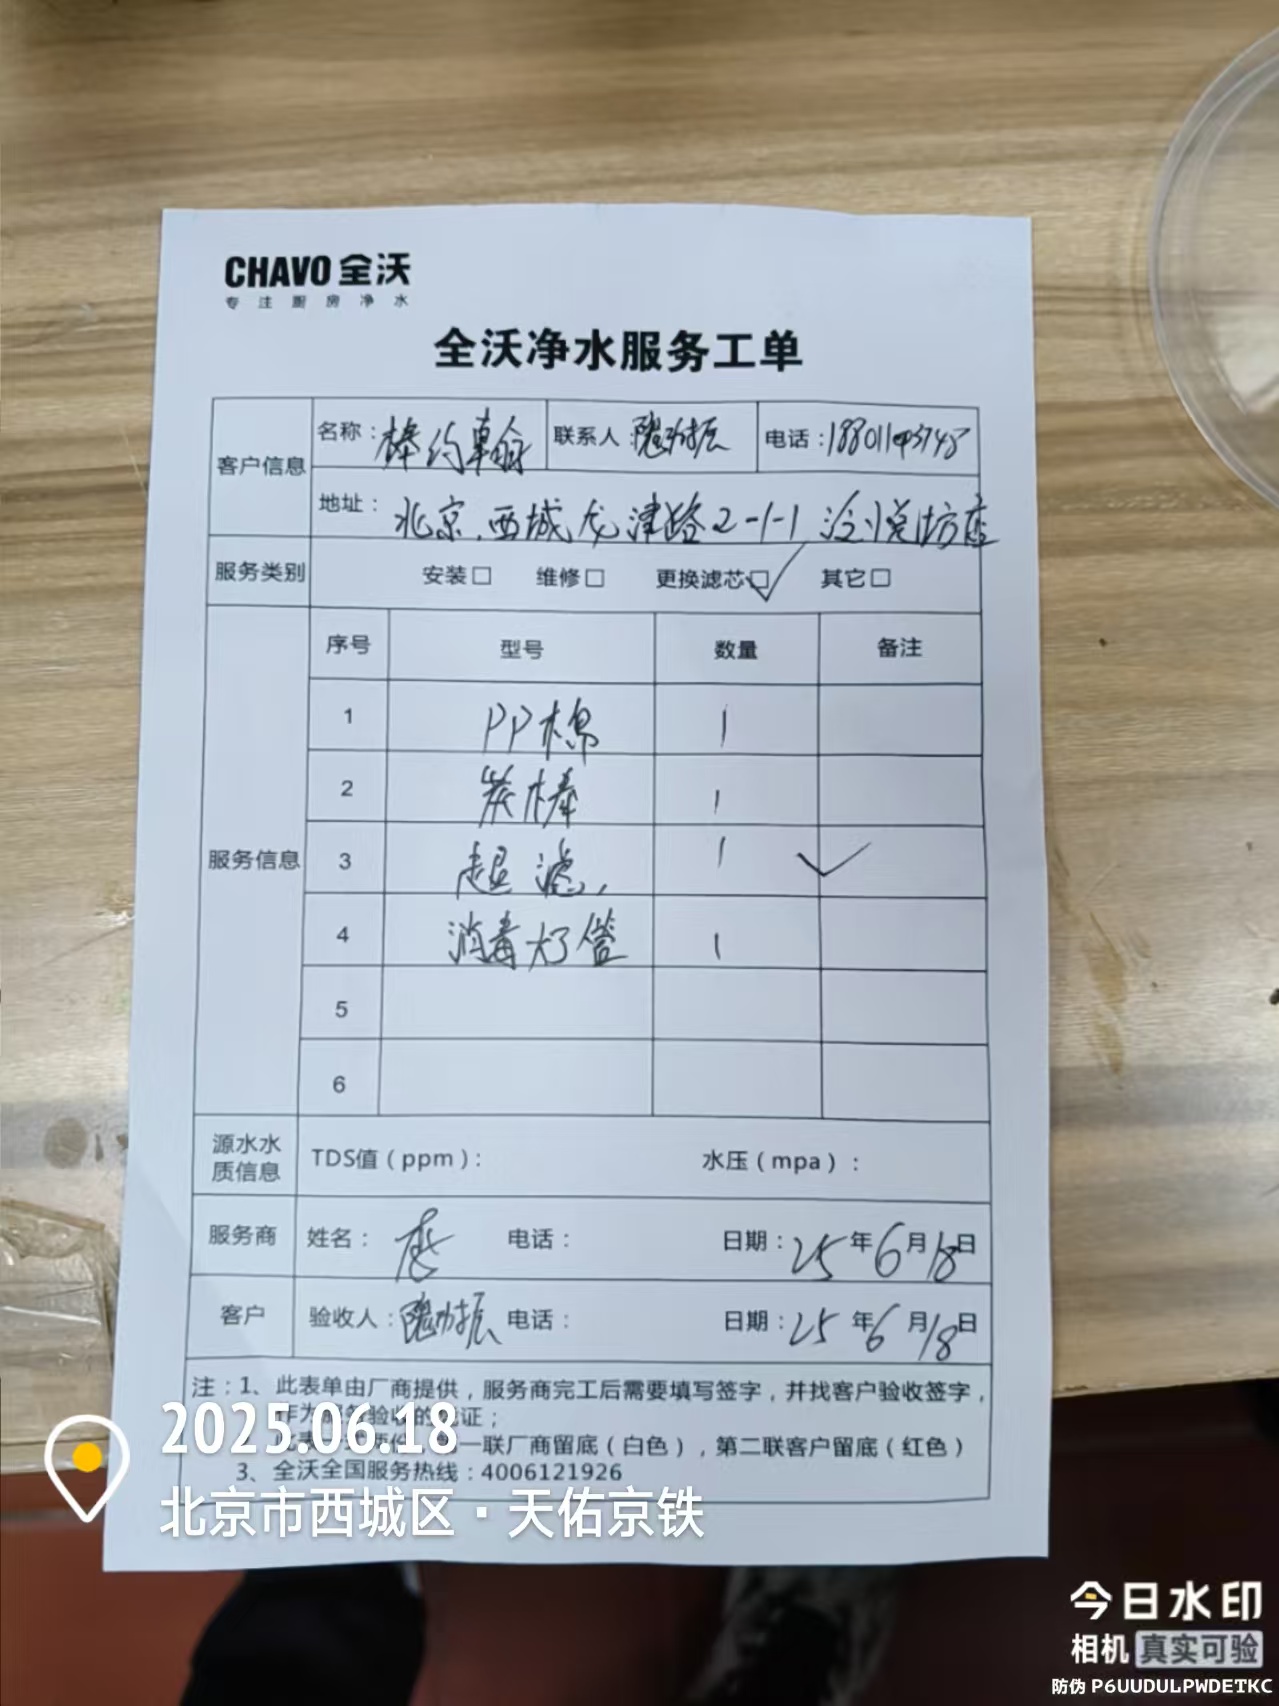 CHAVO 全沃
专注厨房净水
全沃净水服务工单
客户信息 名称：棒约翰 联系人： 电话：
地址：北京.西城龙津路2-1-1 悦坊店
服务类别 安装□ 维修□ 更换滤芯□✓ 其它□
服务信息 序号 型号 数量 备注
1 PP棉 1
2 炭棒 1
3 超滤, 1 ✓
4 消毒灯管 1
5
6
源水水质信息 TDS值（ppm）： 水压（mpa）：
服务商 姓名： 电话： 日期：25年6月18日
客户 验收人： 电话： 日期：25年6月18日
注：1、此表单由厂商提供，服务商完工后需要填写签字，并找客户验收签字，
作为服务验收的凭证；
此表一式两份，第一联厂商留底（白色），第二联客户留底（红色）
3、全沃全国服务热线：4006121926
2025.06.18
北京市西城区·天佑京铁
今日水印
相机 真实可验
防伪 P6UUDULPWDETKC